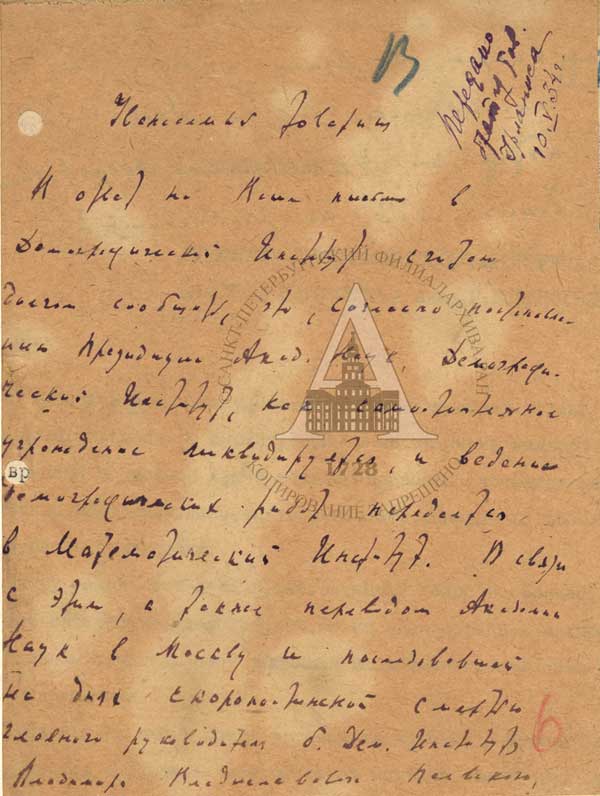 В
Передано
10.V.34 г.
Уважаемый товарищ
В ответ на Ваше письмо в
Демографический Институт считаю
долгом сообщить, что, согласно постановле-
нию Президиума Акад. Наук, Демографи-
ческий Институт, как самостоятельное
учреждение ликвидируется, и ведение
демографических работ передается
в Математический Институт. В связи
с этим, а также переводом Академии
Наук в Москву и последовавшей
на днях скоропостижной смертью
главного руководителя б. Дем. Института
Владимира Владиславовича Паевского,
6
вр
САНКТ-ПЕТЕРБУРГСКИЙ ФИЛИАЛ АРХИВА РАН
1728
КОПИРОВАНИЕ ЗАПРЕЩЕНО